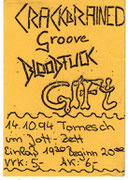 CRACKBRAINED
Groove
BLOODFUCK
GIFT
14.10.94 Tornesch
im Jott-Zett
Einlaß 19³⁰ beginn 20⁰⁰
VVK: 5,- AK: 6,-